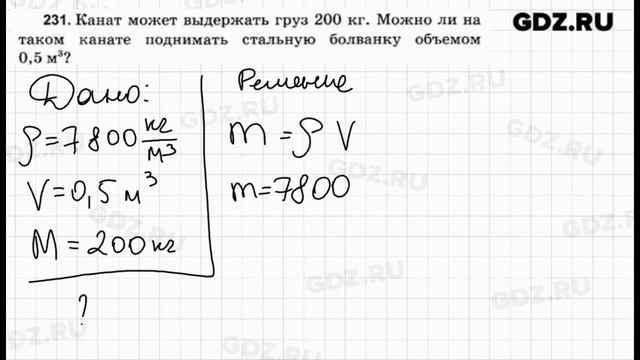 231. Канат может выдержать груз 200 кг. Можно ли на
таком канате поднимать стальную болванку объемом
0,5 м³?
GDZ.RU
Дано:
ρ = 7800 кг/м³
V = 0,5 м³
M = 200 кг
?
Решение
m = ρ V
m = 7800
GDZ.RU
GDZ.RU
GDZ.RU
GDZ.RU
GDZ.RU
GDZ.RU
GDZ.RU
GDZ.RU